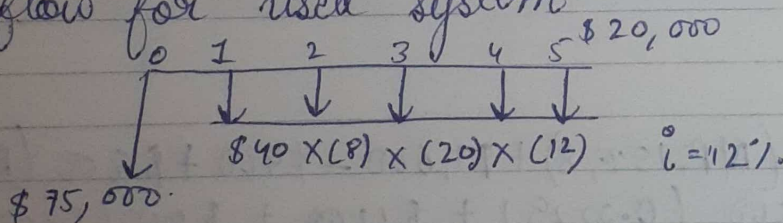 flow for used system
0 1 2 3 4 5 $ 20,000
$40 X (8) x (20) x (12) i = 12%.
$ 75,000.